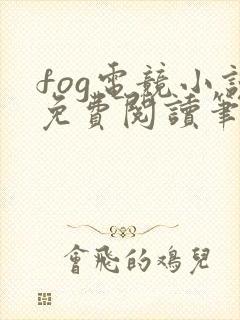 fog電競小說
免費閱讀筆
會飛的鸡兒